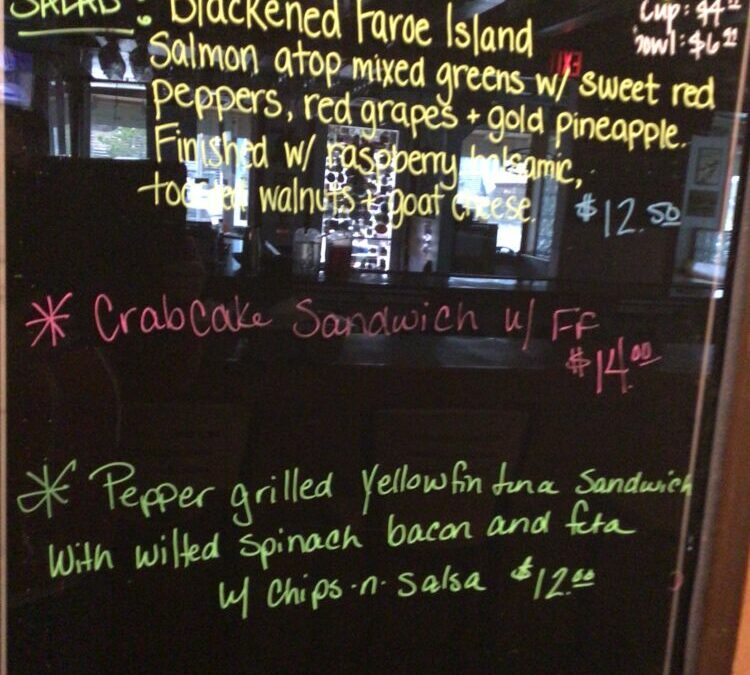 SALAD: Blackened Faroe Island
Cup: $4
Bowl: $6
Salmon atop mixed greens w/ sweet red
peppers, red grapes + gold pineapple.
Finished w/ raspberry balsamic,
toasted walnuts + goat cheese. $12.50
* Crabcake Sandwich w/ FF
$14.00
* Pepper grilled Yellowfin tuna Sandwich
With wilted Spinach bacon and feta
w/ Chips-n-Salsa $12.00